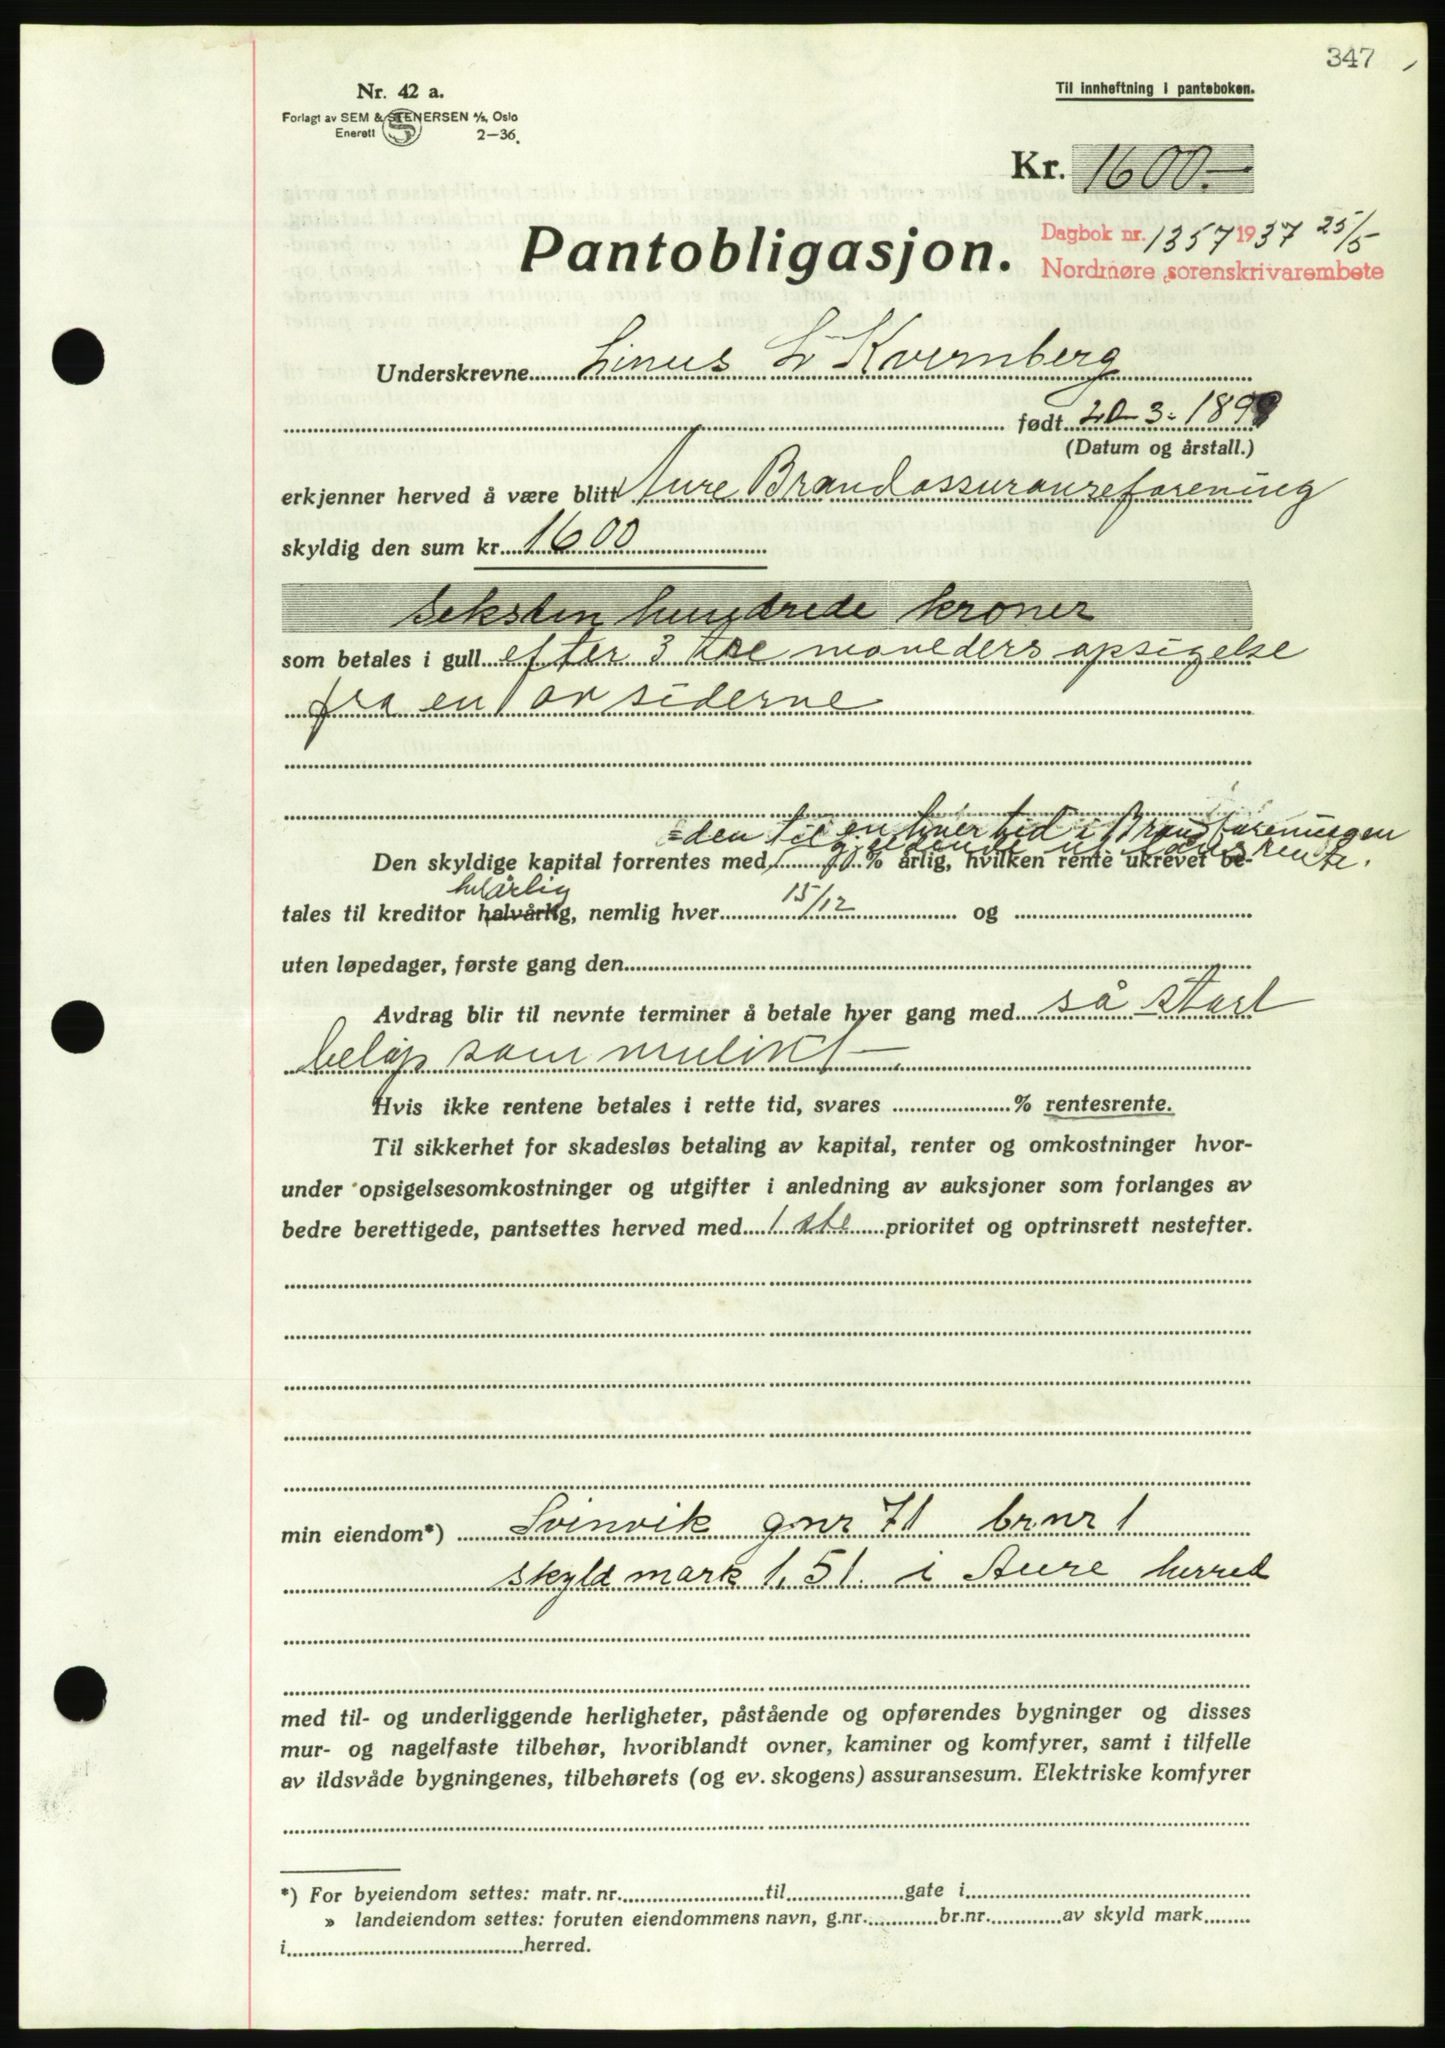 347
Nr. 42 a.
Forlagt av SEM & STENERSEN A/S, Oslo
Enerett 2—36.
Til innheftning i panteboken.
Kr. 1600.—
Dagbok nr. 1357 1937 25/5
Nordmøre sorenskrivarembete
Pantobligasjon.
Underskrevne Linus L Kvernberg
født 20-3-1899
(Datum og årstall.)
erkjenner herved å være blitt Aure Brandassuranseforening
skyldig den sum kr. 1600
seksten hundrede kroner
som betales i gull efter 3 tre måneders opsigelse
fra en av siderne
=den til en hver tid i Brandforeningen
gjeldende utlånsrente.
Den skyldige kapital forrentes med % årlig, hvilken rente ukrevet be-
helårlig
tales til kreditor halvårlig, nemlig hver 15/12 og
uten løpedager, første gang den
Avdrag blir til nevnte terminer å betale hver gang med så stort
beløp som mulikt —
Hvis ikke rentene betales i rette tid, svares % rentesrente.
Til sikkerhet for skadesløs betaling av kapital, renter og omkostninger hvor-
under opsigelsesomkostninger og utgifter i anledning av auksjoner som forlanges av
bedre berettigede, pantsettes herved med 1 ste prioritet og optrinsrett nestefter.
min eiendom*) Svinvik gnr 71 brnr 1
skyld mark 1,51 i Aure herred
med til- og underliggende herligheter, påstående og opførendes bygninger og disses
mur- og nagelfaste tilbehør, hvoriblandt ovner, kaminer og komfyrer, samt i tilfelle
av ildsvåde bygningenes, tilbehørets (og ev. skogens) assuransesum. Elektriske komfyrer
*) For byeiendom settes: matr. nr. til gate i
» landeiendom settes: foruten eiendommens navn, g.nr. br.nr. av skyld mark
i herred.